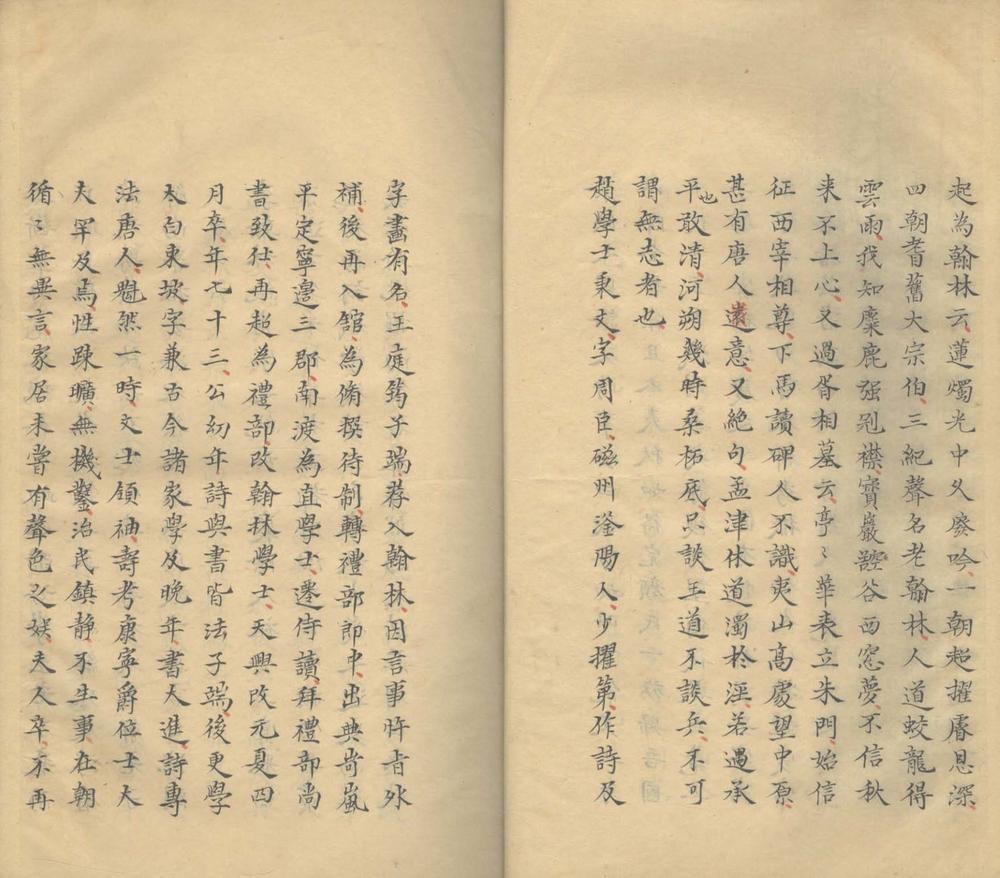 起為翰林云蓮燭光中久廢吟一朝超擢睿恩深
四朝耆舊大宗伯三紀聲名老翰林人道蛟龍得
雲雨我知麋鹿强冠襟寶巖谷西窓夢不信秋
来不上心又過胥相墓云亭〻華表立朱門始信
征西宰相尊下馬讀碑人不識夷山髙處望中原
甚有唐人遺意又絶句孟津休道濁於涇若遇承
平也敢清河朔幾時桑柘底只談王道不談兵不可
謂無志者也
趙學士秉文字周臣磁州滏陽人少擢第作詩及
字畫有名王庭筠子端荐入翰林因言事忤㫖外
補後再入館為脩撰待制轉禮部郎中出典岢嵐
平定寧邉三郡南渡為直學士遷侍讀拜禮部尚
書致仕再起為禮部改翰林學士天興改元夏四
月卒年七十三公幼年詩與書皆法子端後更學
太白東坡字兼古今諸家學及晚年書大進詩專
法唐人魁然一時文士領袖壽考康寧爵位士大
夫罕及焉性踈曠無機鑿治民鎮静不生事在朝
循〻無異言家居未嘗有聲色之娯夫人卒不再